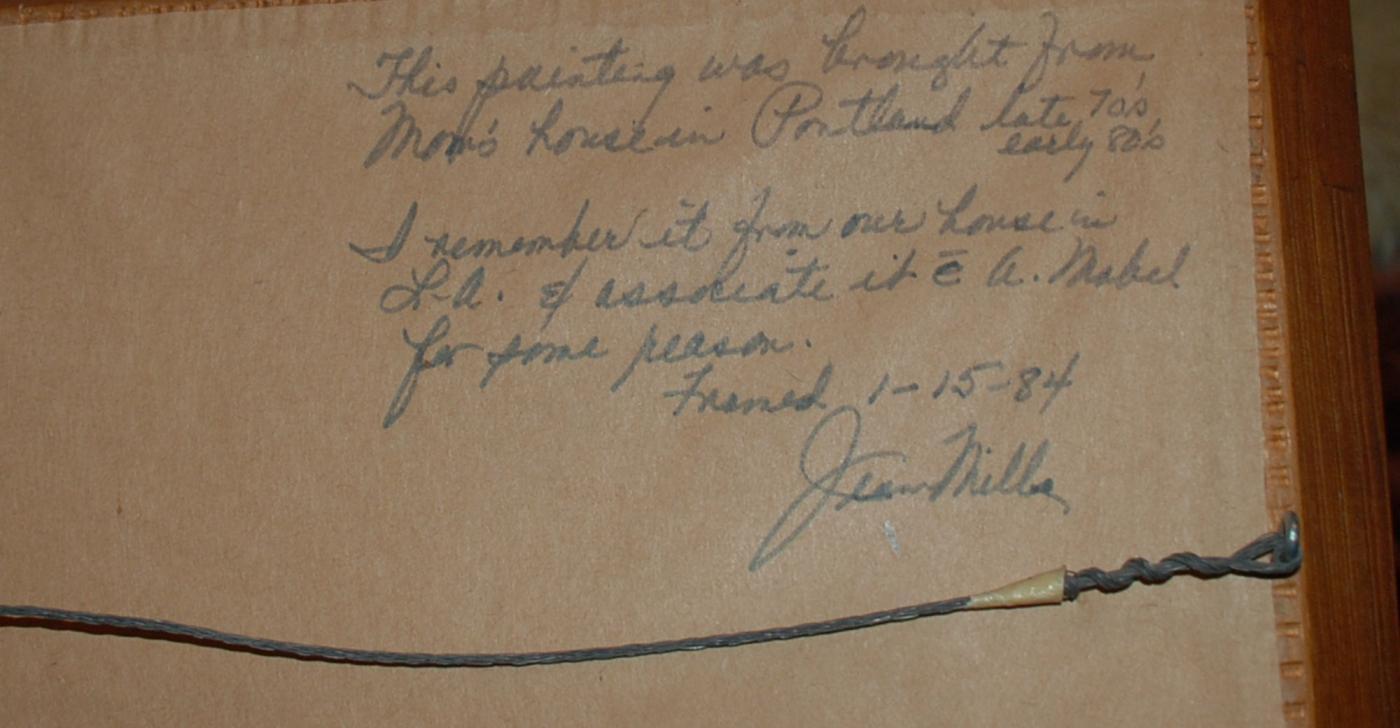 This painting was brought from
Mom's house in Portland late 70's,
early 80's
I remember it from our house in
L.A. & associate it c̄ A. Mabel
for some reason.
Framed 1-15-84
Jean Mills